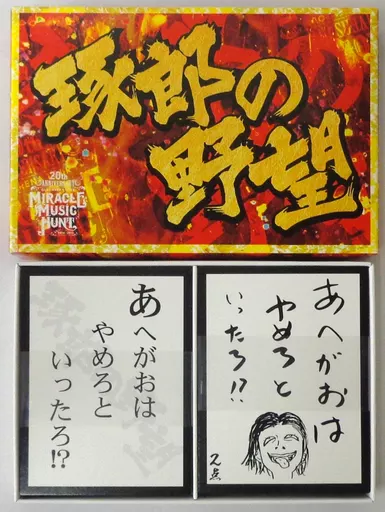 琢郎の
野望
20th
ANNIVERSARY
MIRACLE
MUSIC
HUNT
あへがおは
やめろと
いったろ!?
あへがおは
やめろと
いったろ!?
2点